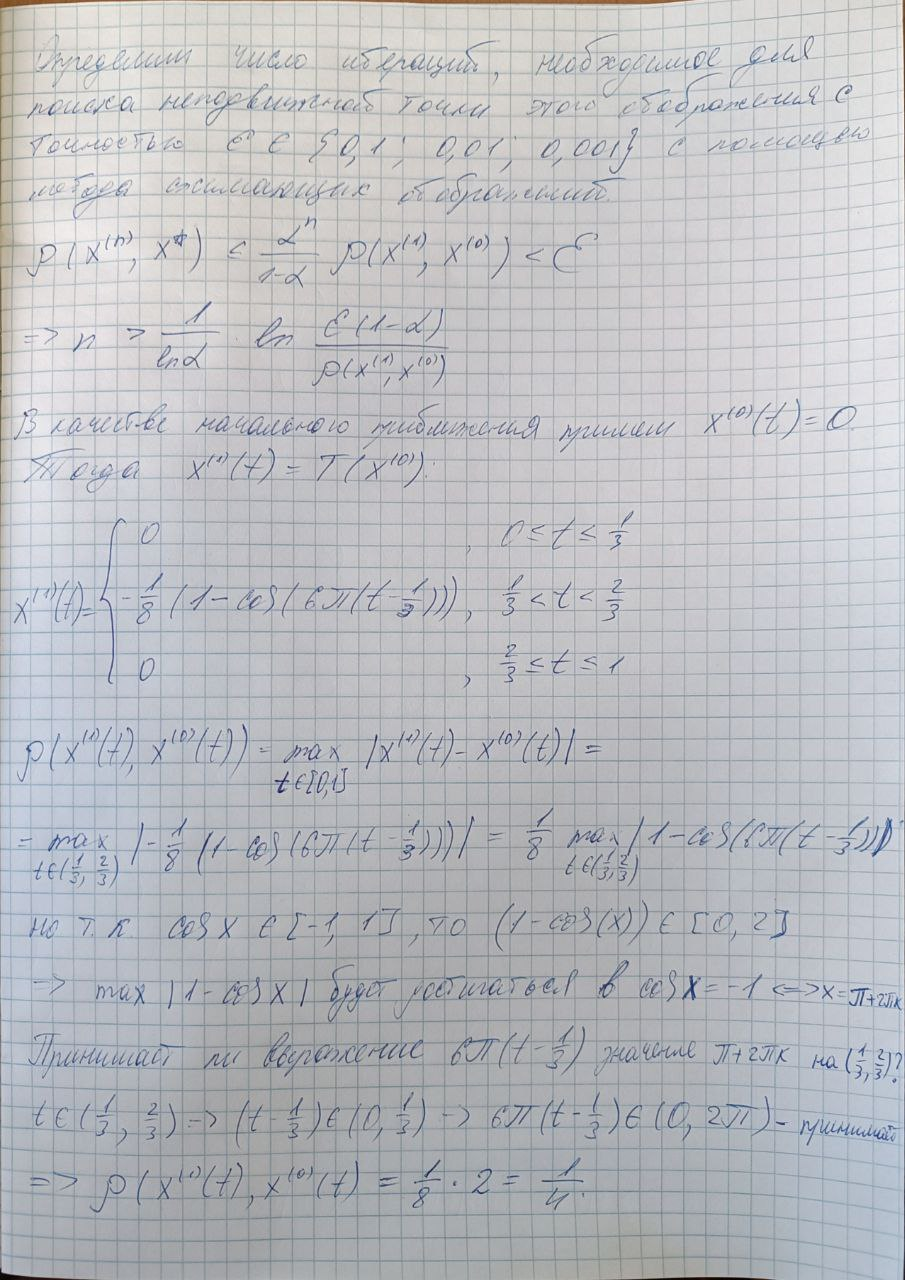 Определим число итераций, необходимое для
поиска неподвижной точки этого отображения с
точностью ℰ ∈ {0,1; 0,01; 0,001} с помощью
метода сжимающих отображений.
ρ(x⁽ⁿ⁾, x*) ≤ αⁿ/(1-α) ρ(x⁽¹⁾, x⁽⁰⁾) < ℰ
=> n > 1/lnα · ln ℰ(1-α)/ρ(x⁽¹⁾, x⁽⁰⁾)
В качестве начального приближения примем x⁽⁰⁾(t) = 0.
Тогда x⁽¹⁾(t) = T(x⁽⁰⁾):
0 , 0 ≤ t ≤ 1/3
x⁽¹⁾(t) = { -1/8 (1 - cos(6π(t - 1/3))), 1/3 < t < 2/3
0 , 2/3 ≤ t ≤ 1
ρ(x⁽¹⁾(t), x⁽⁰⁾(t)) = max t∈[0,1] |x⁽¹⁾(t) - x⁽⁰⁾(t)| =
= max t∈(1/3, 2/3) |-1/8 (1 - cos(6π(t - 1/3)))| = 1/8 max t∈(1/3, 2/3) |1 - cos(6π(t - 1/3))|
но т.к. cos x ∈ [-1, 1], то (1 - cos(x)) ∈ [0, 2]
=> max |1 - cos x| будет достигаться в cos x = -1 <=> x = π + 2πк
Принимает ли выражение 6π(t - 1/3) значение π + 2πк на (1/3, 2/3)?
t ∈ (1/3, 2/3) => (t - 1/3) ∈ (0, 1/3) => 6π(t - 1/3) ∈ (0, 2π) - принимает
=> ρ(x⁽¹⁾(t), x⁽⁰⁾(t) = 1/8 · 2 = 1/4.